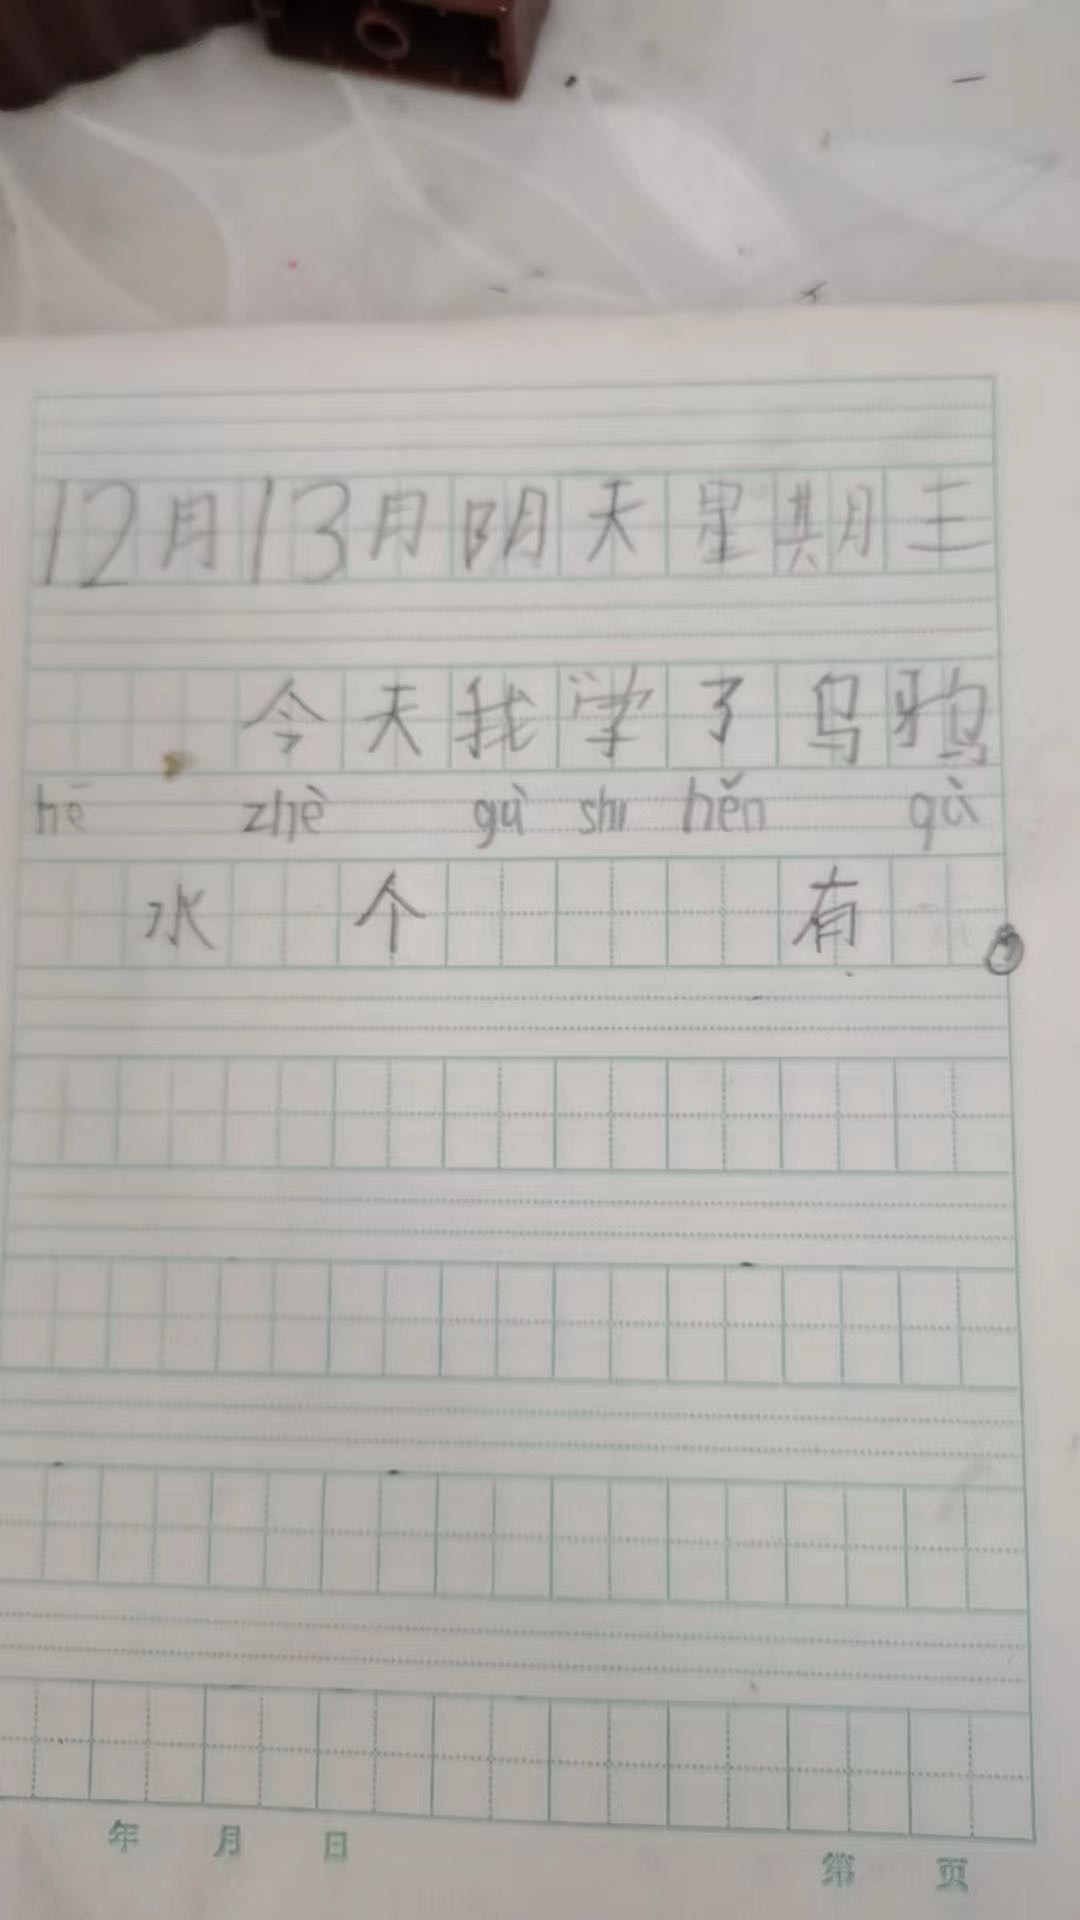 12月13月阴天星期三
今天我学了乌鸦
hē zhè gù shi hěn qù
水个有。
年 月 日 第 页